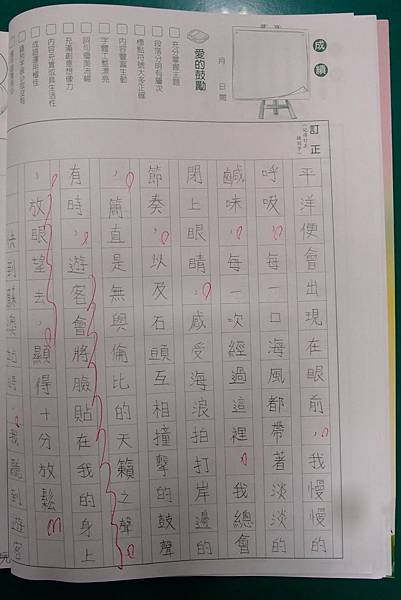 成績
月　日　閱
愛的鼓勵
□充分掌握主題
□段落分明有層次
□標點符號大多正確
□內容豐富生動
□字體工整漂亮
□詞句優美流暢
□充滿創意想像力
□成語運用極佳
訂正
平洋便會出現在眼前，我慢慢的
呼吸，每一口海風都帶著淡淡的
鹹味，每一次經過這裡，我總會
閉上眼睛，感受海浪拍打岸邊的
節奏，以及石頭互相撞擊的鼓聲
，簡直是無與倫比的天籟之聲。
有時，遊客會將臉貼在我的身上
，放眼望去，顯得十分放鬆。
到蘇澳 時，我聽到遊客
玩